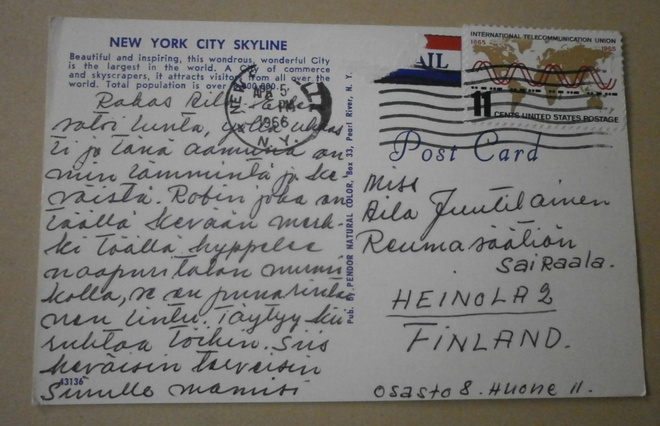 NEW YORK CITY SKYLINE
Beautiful and inspiring, this wondrous, wonderful City
is the largest in the world. A City of commerce
and skyscrapers, it attracts visitors from all over the
world. Total population is over 8,000,000.
Rakas Aila.
satoi lunta,
ti jo tänä aamuna on
niin lämmintä ja ke
väistä. Robin joka on
täällä kevään merk-
ki täällä hyppelee
naapuritalon nurmi
kolla, se on punarinta
nen lintu. Täytyy kii
ruhtaa töihin. Siis
keväisin terveisin
Sinulle mamisi
43136
Pub. By PENDOR NATURAL COLOR, Box 33, Pearl River, N. Y.
NEW
APR 5
PM
1966
N.Y.
INTERNATIONAL TELECOMMUNICATION UNION
1865 1965
11 CENTS UNITED STATES POSTAGE
Post Card
Miss
Aila Juutilainen
Reumasäätiön
Sairaala.
HEINOLA 2
FINLAND.
Osasto 8. Huone 11.